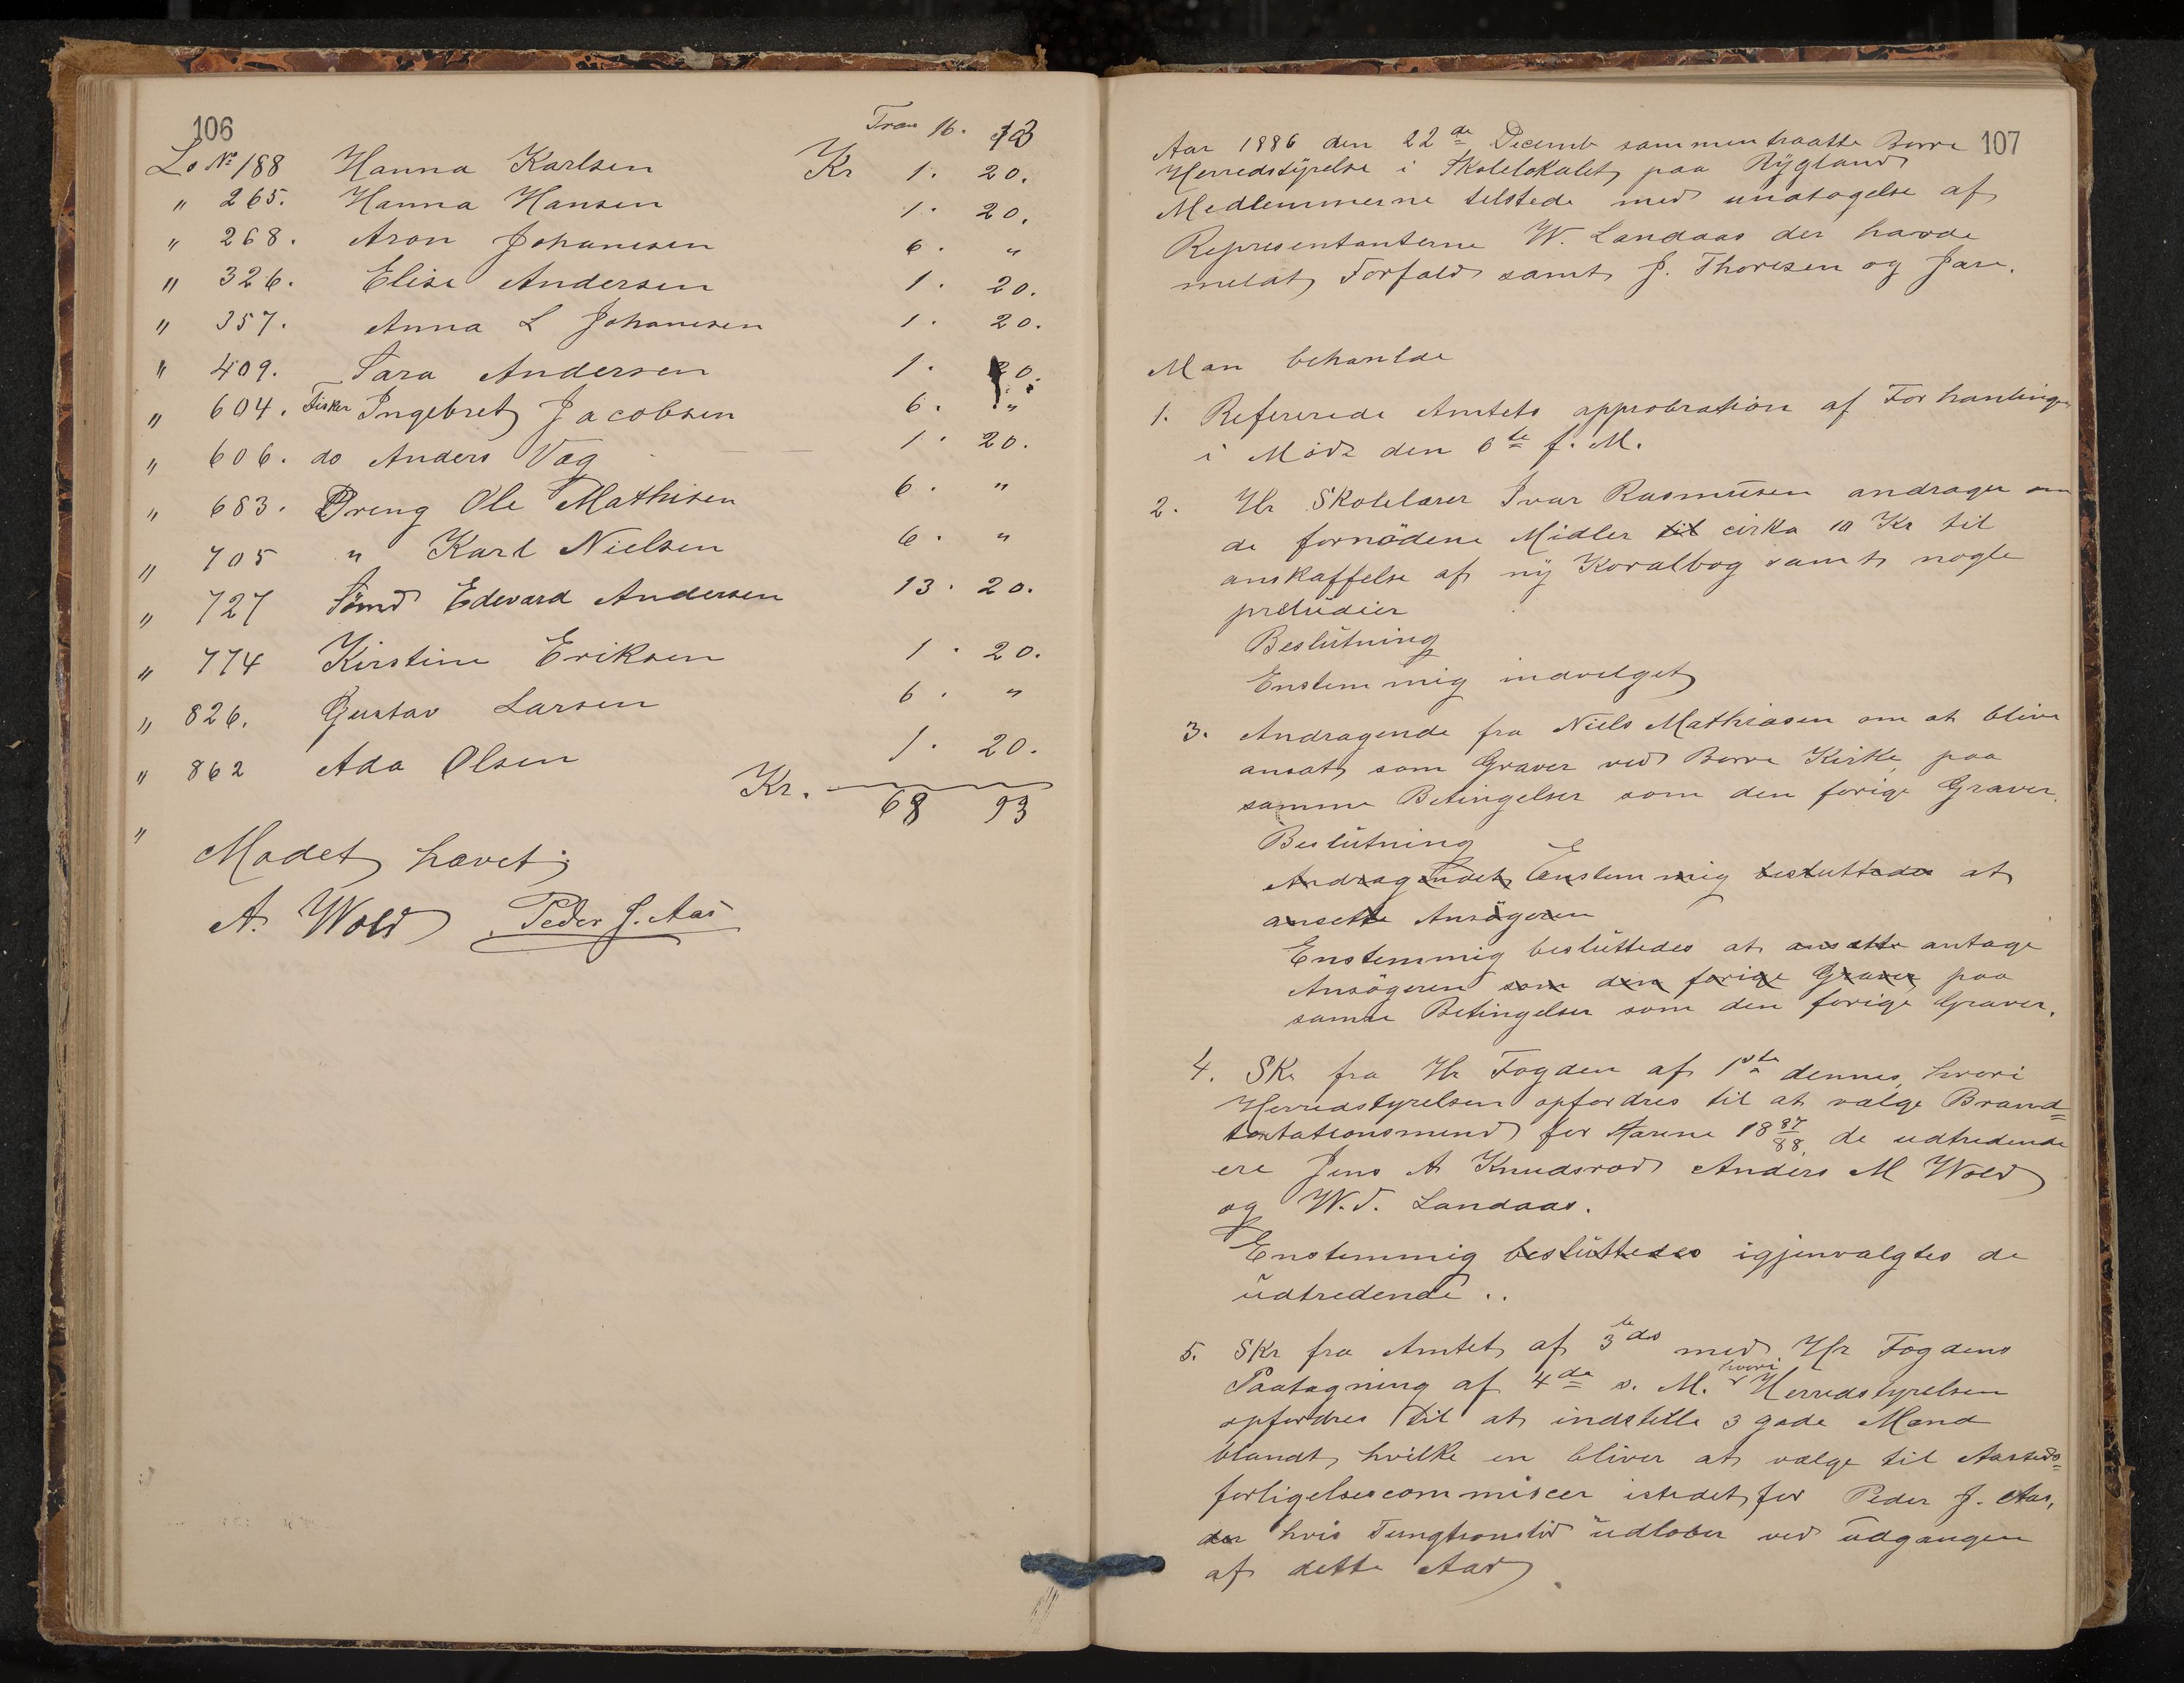 106
Tran 16. 13
Lo No 188 Hanna Karlsen Kr 1. 20.
" 265. Hanna Hansen 1. 20.
" 268. Aron Johanesen 6. "
" 326. Elise Andersen 1. 20.
" 357. Anna L Johanesen 1. 20.
" 409. Sara Andersen 1. 20.
" 604. Fisker Ingebret Jacobsen 6. "
" 606. do Anders Vag 1. 20.
" 683. Dreng Ole Mathisen 6. "
" 705 " Karl Nielsen 6. "
" 727 Sømd Edevard Andersen 13. 20.
" 774 Kirstine Eriksen 1. 20.
" 826. Gustav Larsen 6. "
" 862 Ada Olsen 1. 20.
" Kr. 68 93
Mødet hævet;
A. Wold Peder J. Aas
107
Aar 1886 den 22de Decemb sammentraatte Borre
Herredstyrelse i Skolelokalet paa Rygland
Medlemmerne tilstede med undtagelse af
Representanterne W. Landaas der havde
meldt Forfald samt J. Thoresen og Jare.
Man behanlde
1. Refererede Amtets approbration af Forhanlingen
i Møde den 6te f. M.
2. Hr Skolelærer Ivar Rasmusen andrager om
de fornødene Midler til cirka 10 Kr til
anskaffelse af ny Koralbog samt nogle
preludier
Beslutning
Enstemmig indvelget
3. Andragende fra Niels Mathiasen om at blive
ansat som Graver ved Borre Kirke paa
samme Betingelser som den forige Graver.
Beslutning
Andragendet Enstemmig besluttedes at
ansette Ansøgeren
Enstemmig besluttedes at ansætte antage
Ansøgeren som den forige Graver paa
samme Betingelser som den forige Graver.
4. Skr fra Hr Fogden af 1ste dennes, hvori
Herredstyrelsen opfordres til at vælge Brand=
taxtationsmend for Aarene 18 87/88, de udtredende
ere Jens A Knudsrød Anders M Wold
og W. T. Landaas.
Enstemmig besluttedes igjenvalgtes de
udtredende..
5. Skr fra Amtet af 3de ds med Hr Fogdens
Paategning af 4de s. M. hvori Herredstyrelsen
opfordres til at indstille 3 gode Mænd
blandt hvilke en bliver at vælge til Aasteds=
forligelsescommiseer istedet for Peder J. Aas,
der hvis Fungtionstid udløber ved Udgangen
af dette Aar